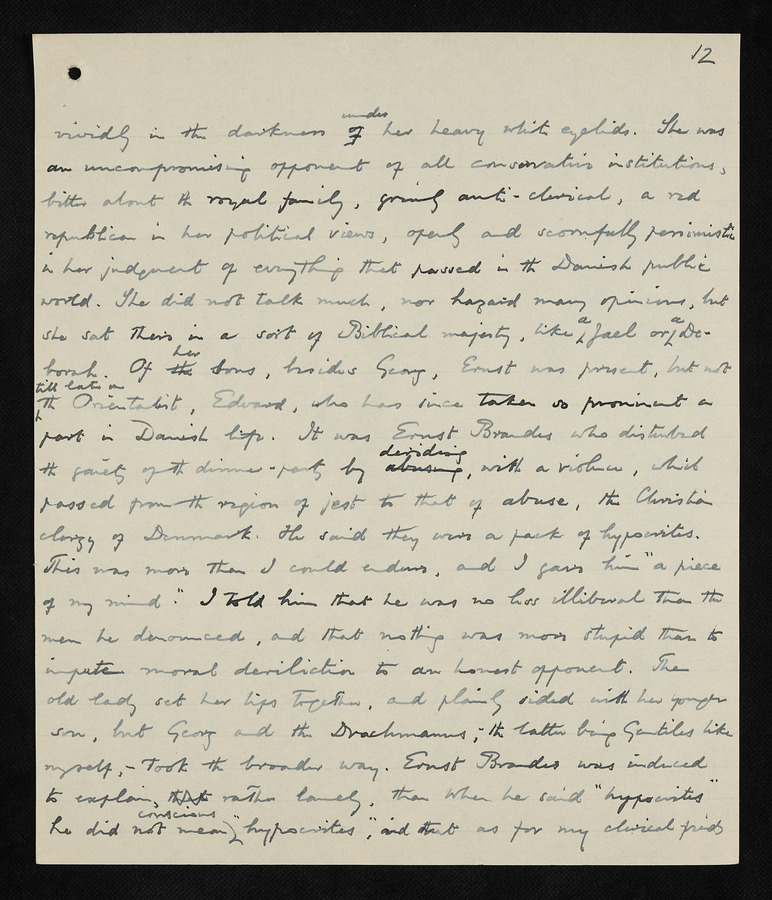 12
vividly in the darkness of under her heavy white eyelids. She was
an uncompromising opponent of all conservative institutions,
bitter about the royal family, grimly anti-clerical, a red
republican in her political views, openly and scornfully pessimistic
in her judgment of everything that passed in the Danish public
world. She did not talk much, nor hazard many opinions, but
she sat there, in a sort of Biblical majesty, like a Jael or a De-
borah. Of the her sons, besides Georg, Ernst was present, but not
till later on
the Orientalist, Edvard, who has since taken so prominent a
part in Danish life. It was Ernst Brandes who disturbed
the gaiety of the dinner-party by abusing deriding, with a violence, which
passed from the region of jest to that of abuse, the Christian
clergy of Denmark. He said they were a pack of hypocrites.
This was more than I could endure, and I gave him "a piece
of my mind". I told him that he was no less illiberal than the
men he denounced, and that nothing was more stupid than to
impute moral deriliction to an honest opponent. The
old lady set her lips together, and plainly sided with her younger
son, but Georg and the Drachmanns, - the latter being Gentiles like
myself, - took the broader way. Ernst Brandes was induced
to explain, that rather lamely, than when he said "hypocrites"
he did not mean conscious "hypocrites", and that as for my clerical friends